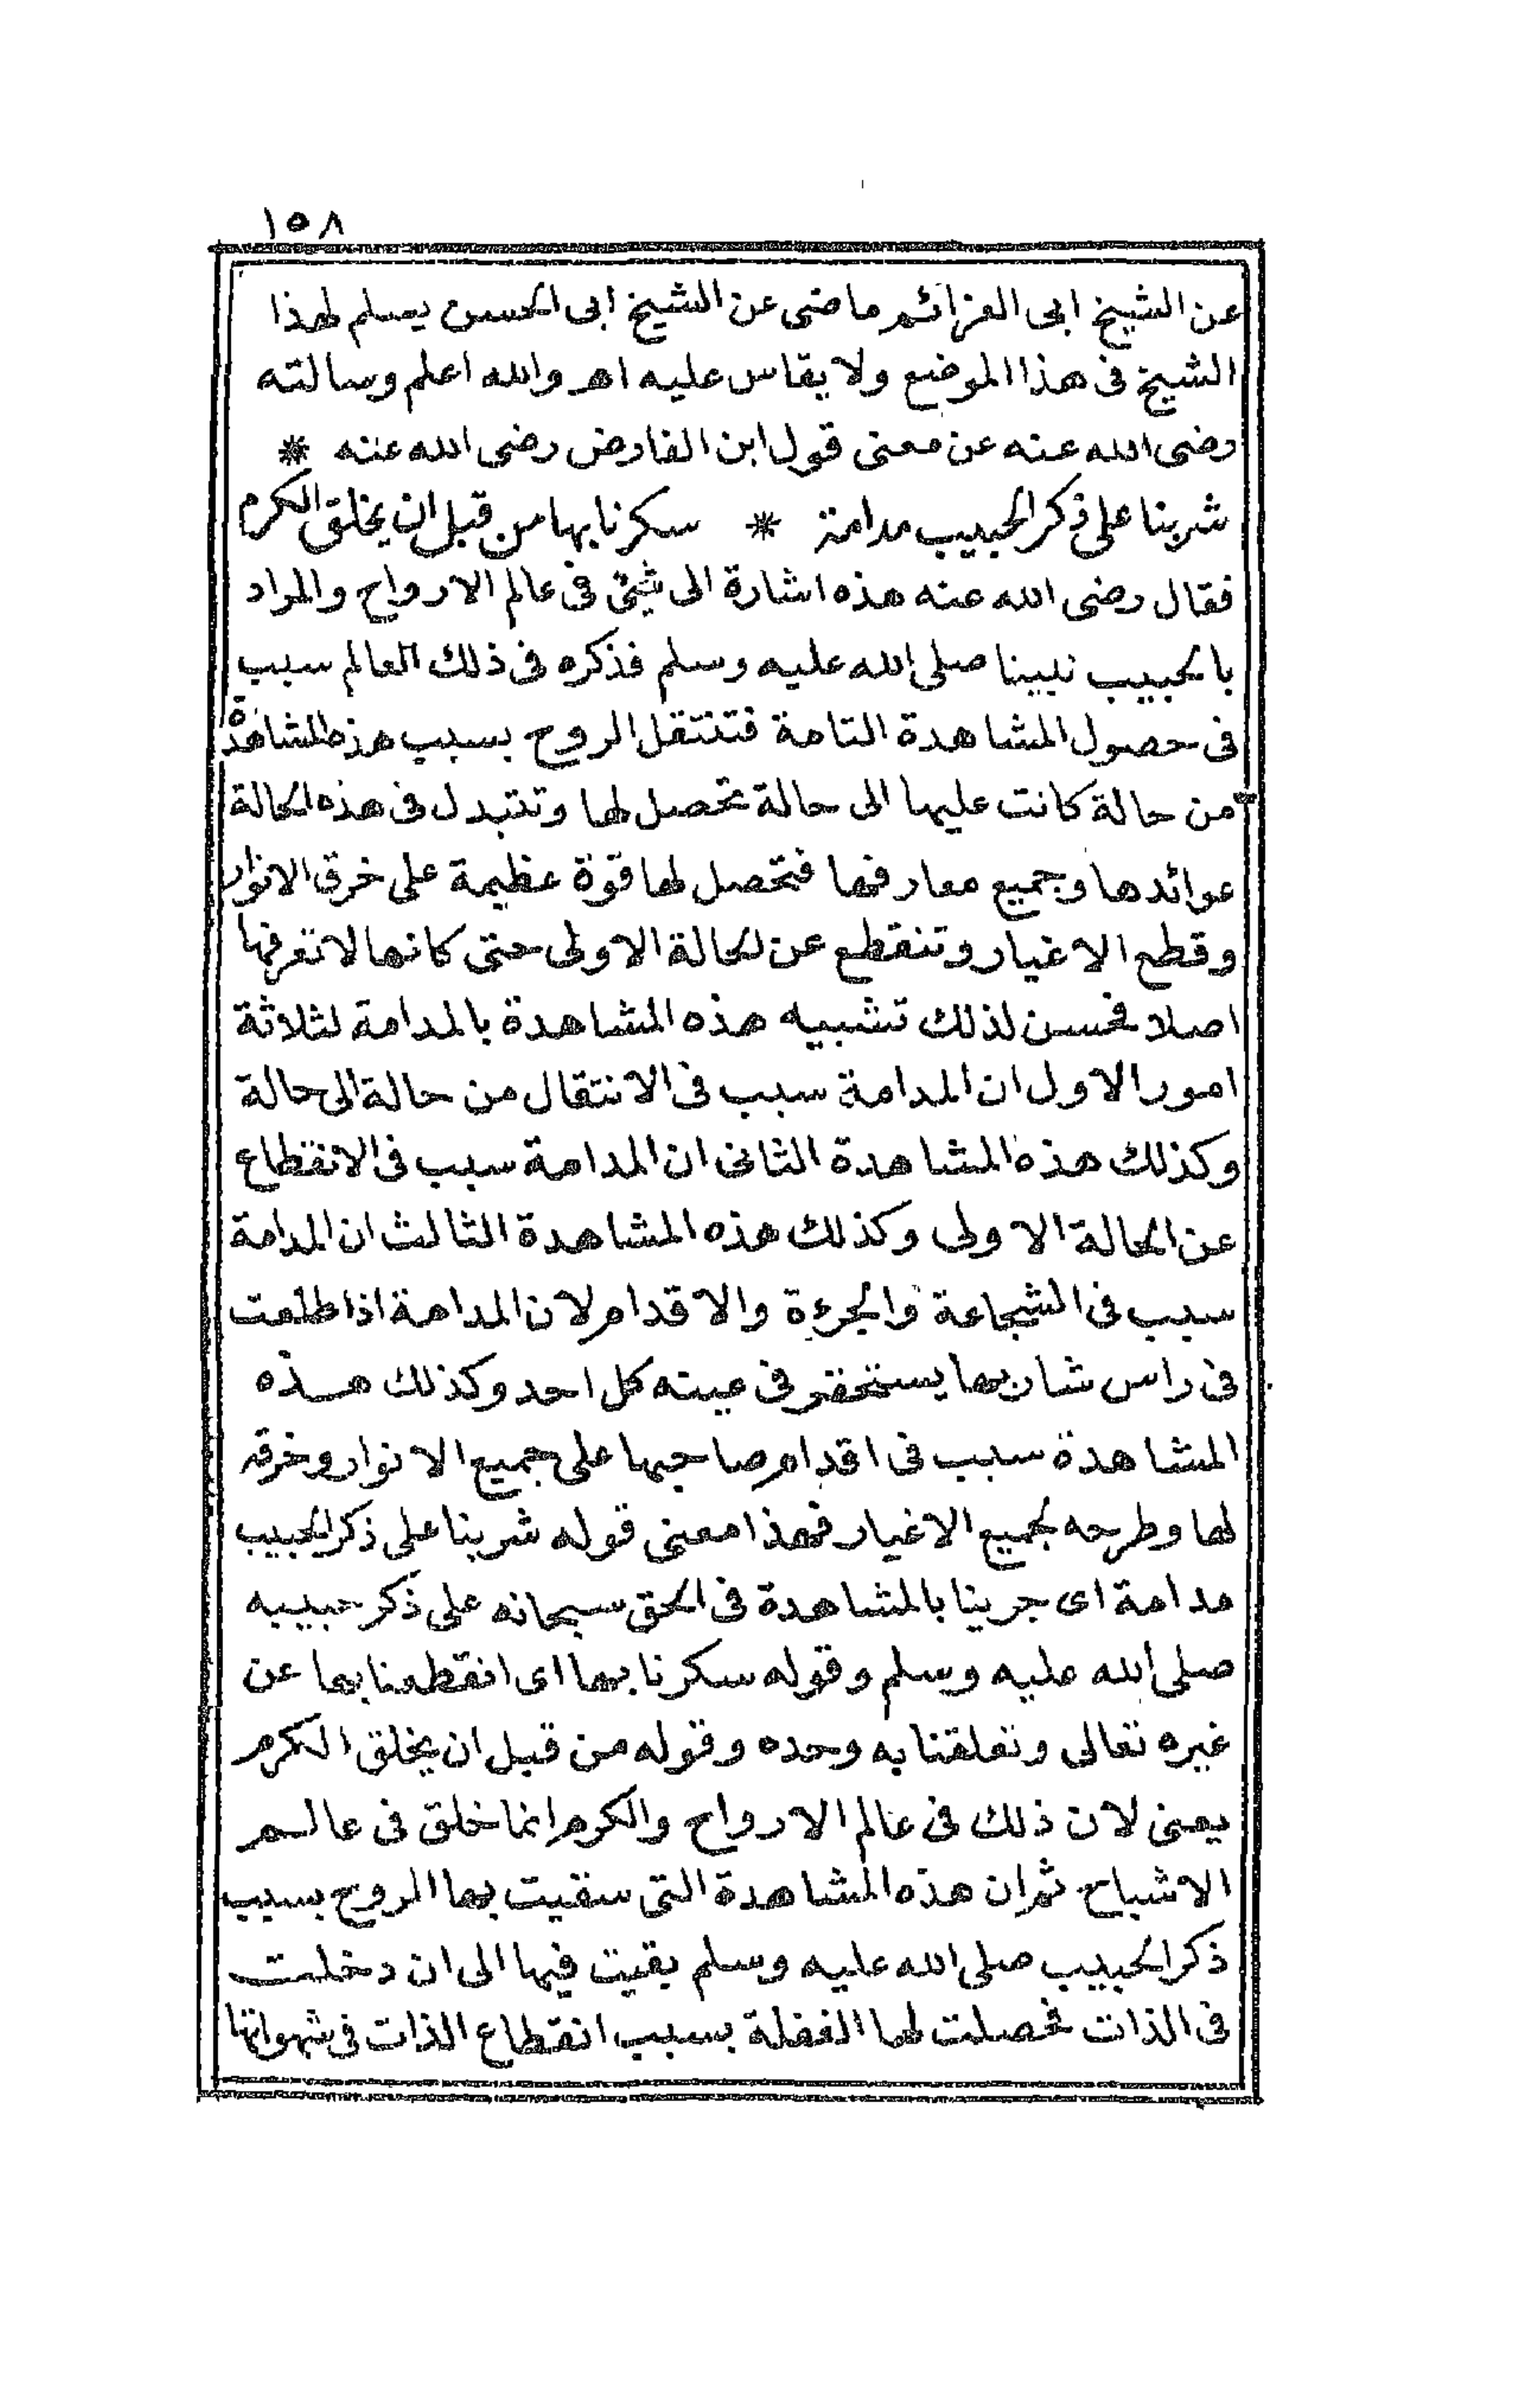 ١٥٨
عن الشيخ ابى العزائم ماضى عن الشيخ ابى الحسن يسلم لهذا
الشيخ فى هذا الموضع ولا يقاس عليه اهـ والله اعلم وسالته
رضى الله عنه عن معنى قول ابن الفارض رضى الله عنه *
شربنا على ذكر الحبيب مدامة * سكرنا بها من قبل ان يخلق الكرم
فقال رضى الله عنه هذه اشارة الى شئ فى عالم الارواح والمراد
بالحبيب نبينا صلى الله عليه وسلم فذكره فى ذلك العالم سبب
فى حصول المشاهدة التامة فتنتقل الروح بسبب هذه المشاهدة
من حالة كانت عليها الى حالة تحصل لها وتتبدل فى هذه الحالة
عوائدها وجميع معارفها فتحصل لها قوة عظيمة على خرق الانوار
وقطع الاغيار وتنقطع عن الحالة الاولى حتى كانها لا تعرفها
اصلا فحسن لذلك تشبيه هذه المشاهدة بالمدامة لثلاثة
امور الاول ان المدامة سبب فى الانتقال من حالة الى حالة
وكذلك هذه المشاهدة الثانى ان المدامة سبب فى الانقطاع
عن الحالة الاولى وكذلك هذه المشاهدة الثالث ان المدامة
سبب فى الشجاعة والجرءة والاقدام لان المدامة اذا طلعت
فى راس شاربها يستحقر فى عينه كل احد وكذلك هذه
المشاهدة سبب فى اقدام صاحبها على جميع الانوار وخرقه
لها وطرحه لجميع الاغيار فهذا معنى قوله شربنا على ذكر الحبيب
مدامة اى جرينا بالمشاهدة فى الحق سبحانه على ذكر حبيبه
صلى الله عليه وسلم وقوله سكرنا بها اى انقطعنا بها عن
غيره تعالى وتعلقنا به وحده وقوله من قبل ان يخلق الكرم
يعنى لان ذلك فى عالم الارواح والكرم انما خلق فى عالم
الاشباح ثم ان هذه المشاهدة التى سقيت بها الروح بسبب
ذكر الحبيب صلى الله عليه وسلم بقيت فيها الى ان دخلت
فى الذات فحصلت لها الغفلة بسبب انقطاع الذات فى شهواتها